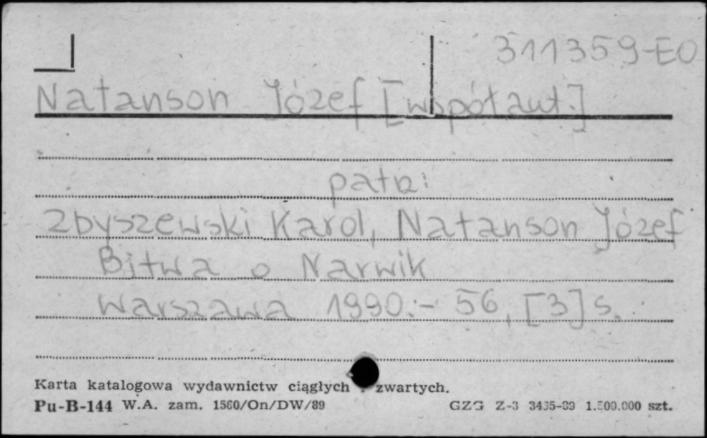 311359-EO
Natanson Józef [współaut.]
patrz:
Zbyszewski Karol, Natanson Józef
Bitwa o Narwik
Warszawa 1990.- 56, [3] s.
Karta katalogowa wydawnictw ciągłych zwartych.
Pu-B-144 W.A. zam. 1560/On/DW/89 GZG Z-3 1.500.000 szt.